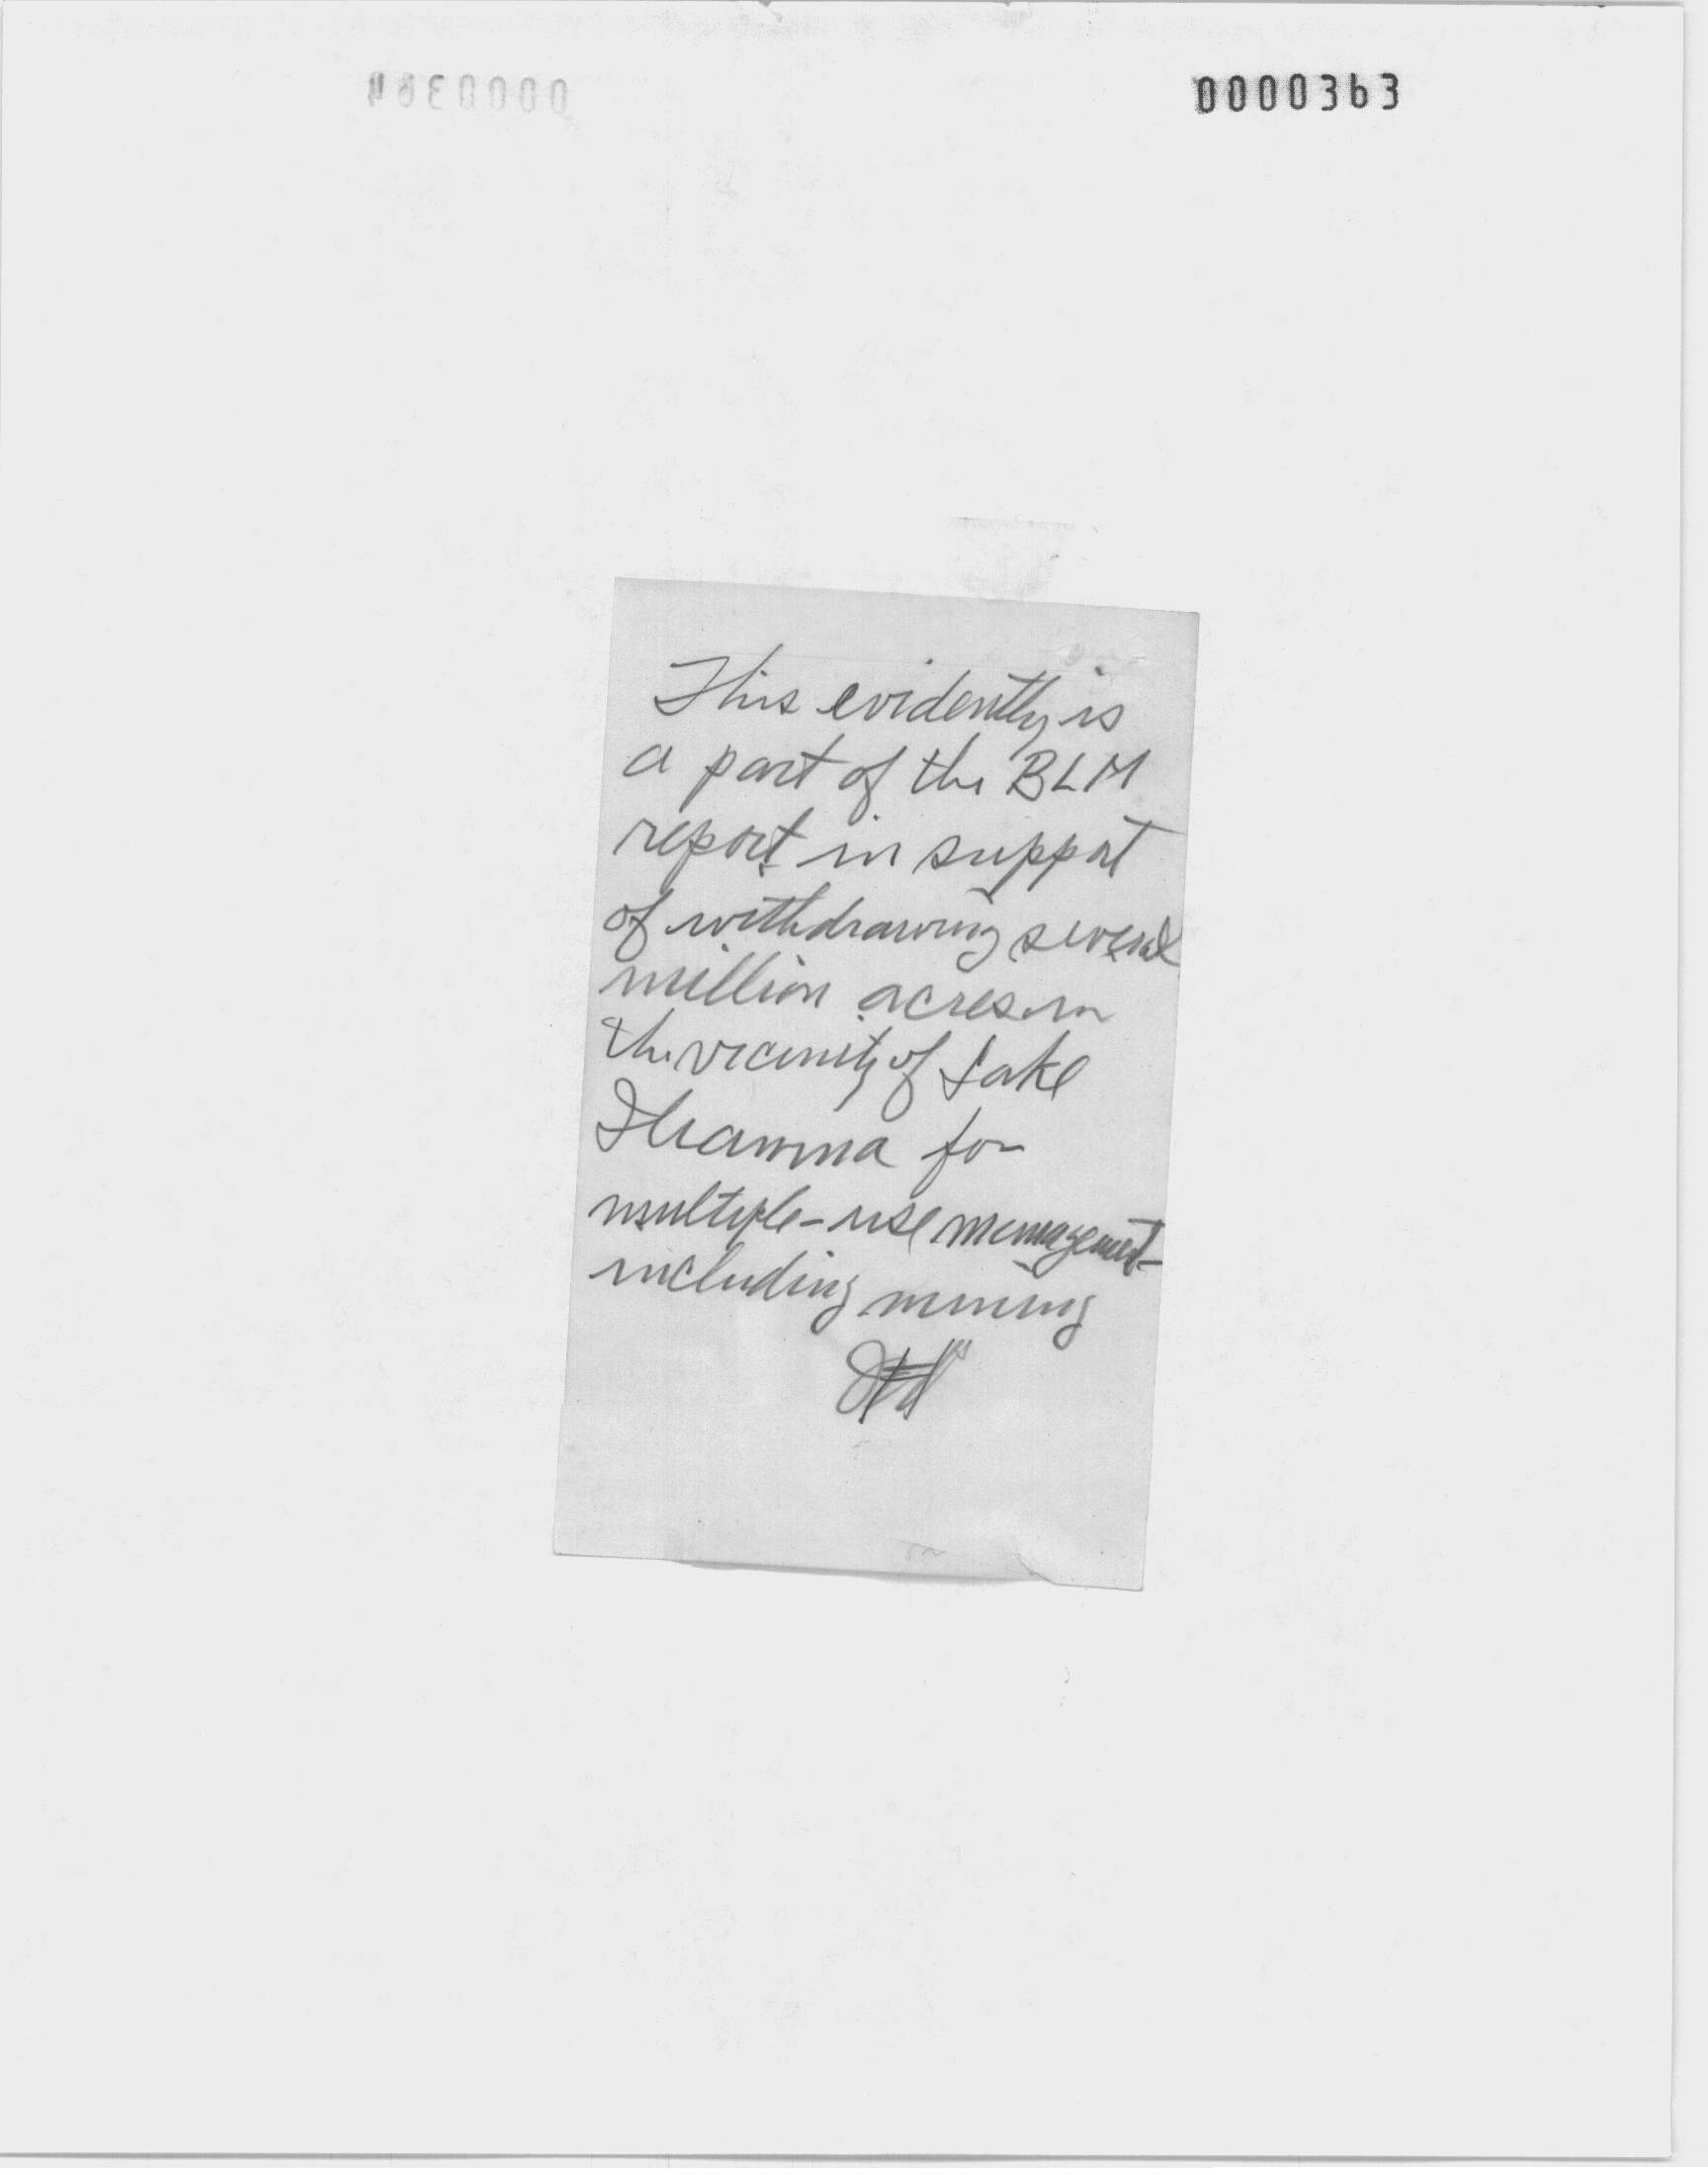 0000363
This evidently is
a part of the BLM
report in support
of withdrawing several
million acres in
the vicinity of Lake
Iliamna for
multiple-use management
including mining